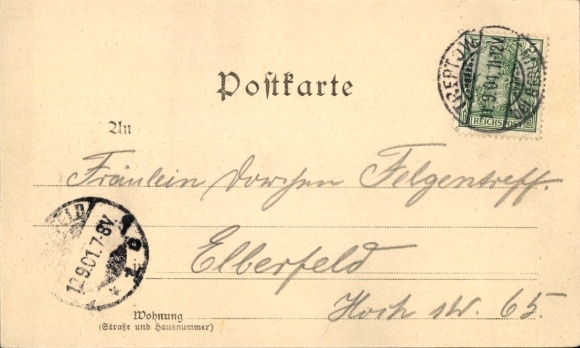 Postkarte
TREPTOW
12.9.01.11-12V.
REICHSPOST
An
Fräulein Dorchen Felgentreff.
Elberfeld
12.9.01.7-8V.
Hoch str. 65.
Wohnung
(Straße und Hausnummer)